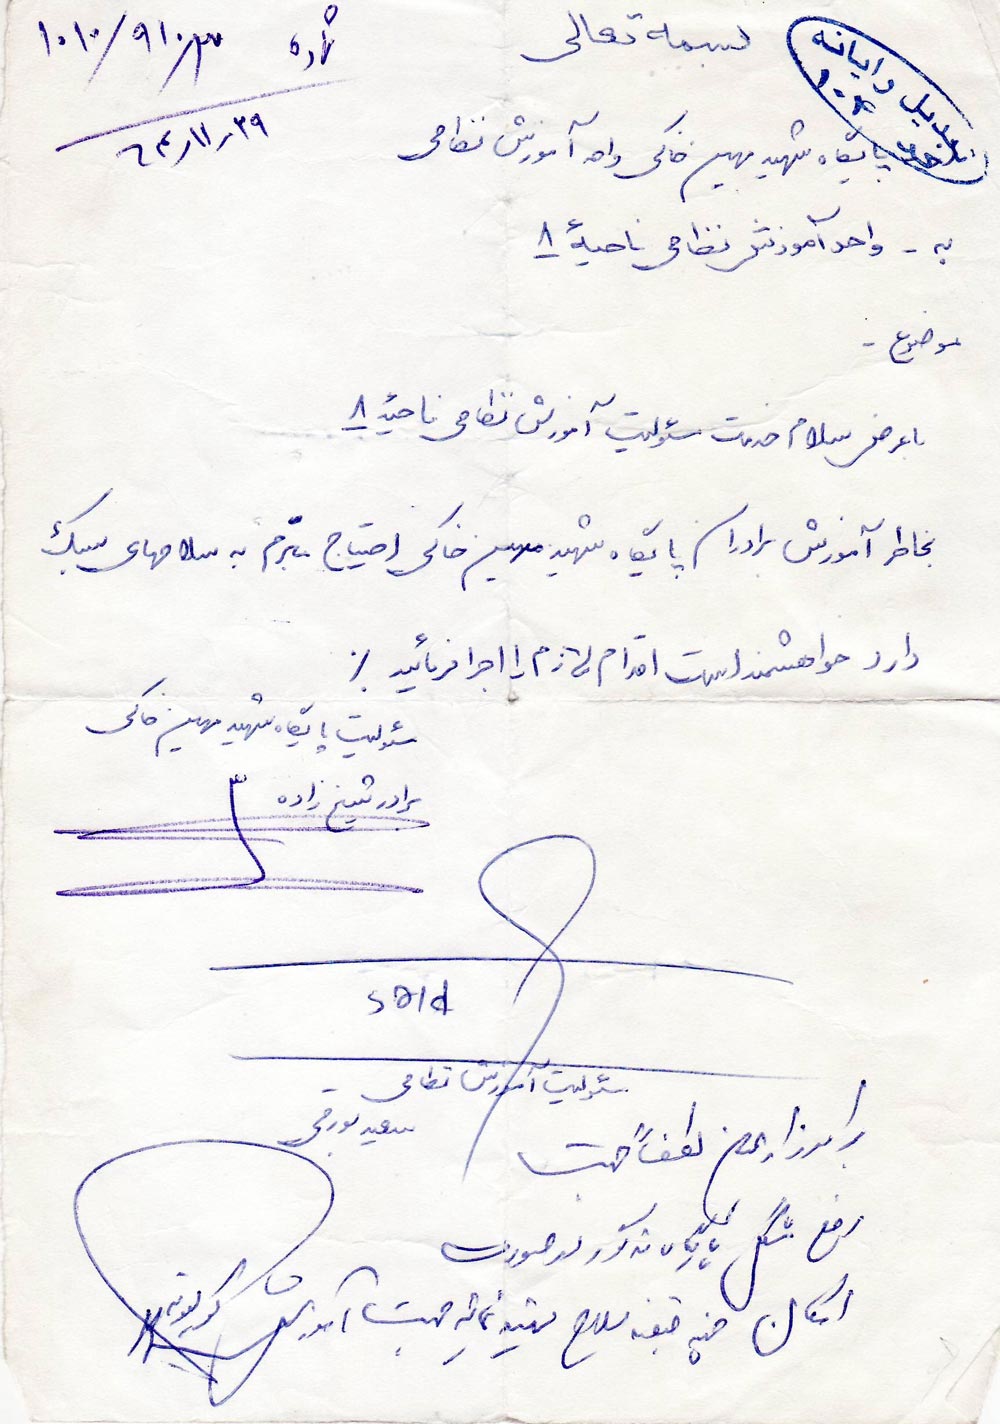 بسمه تعالی
شماره ۱۰۱۰/۹۱۰/۳
۶۴٫۱۱٫۲۹
تبدیل رایانه
پایگاه شهید مهین خاکی واحد آموزش نظامی
به - واحد آموزش نظامی ناحیهٔ ۸
موضوع -
با عرض سلام خدمت مسئولیت آموزش نظامی ناحیهٔ ۸
بخاطر آموزش برادران پایگاه شهید مهین خاکی احتیاج مبرم به سلاحهای سبک
دارد خواهشمند است اقدام لازم را اجرا فرمائید ./
مسئولیت پایگاه شهید مهین خاکی
برادر شیخ زاده
said
مسئولیت آموزش نظامی -
سعید
برادر لطفاً جهت
رفع مشکل پایگاه مذکور در صورت
امکان چند قبضه سلاح تهیه نمائید جهت آموزش